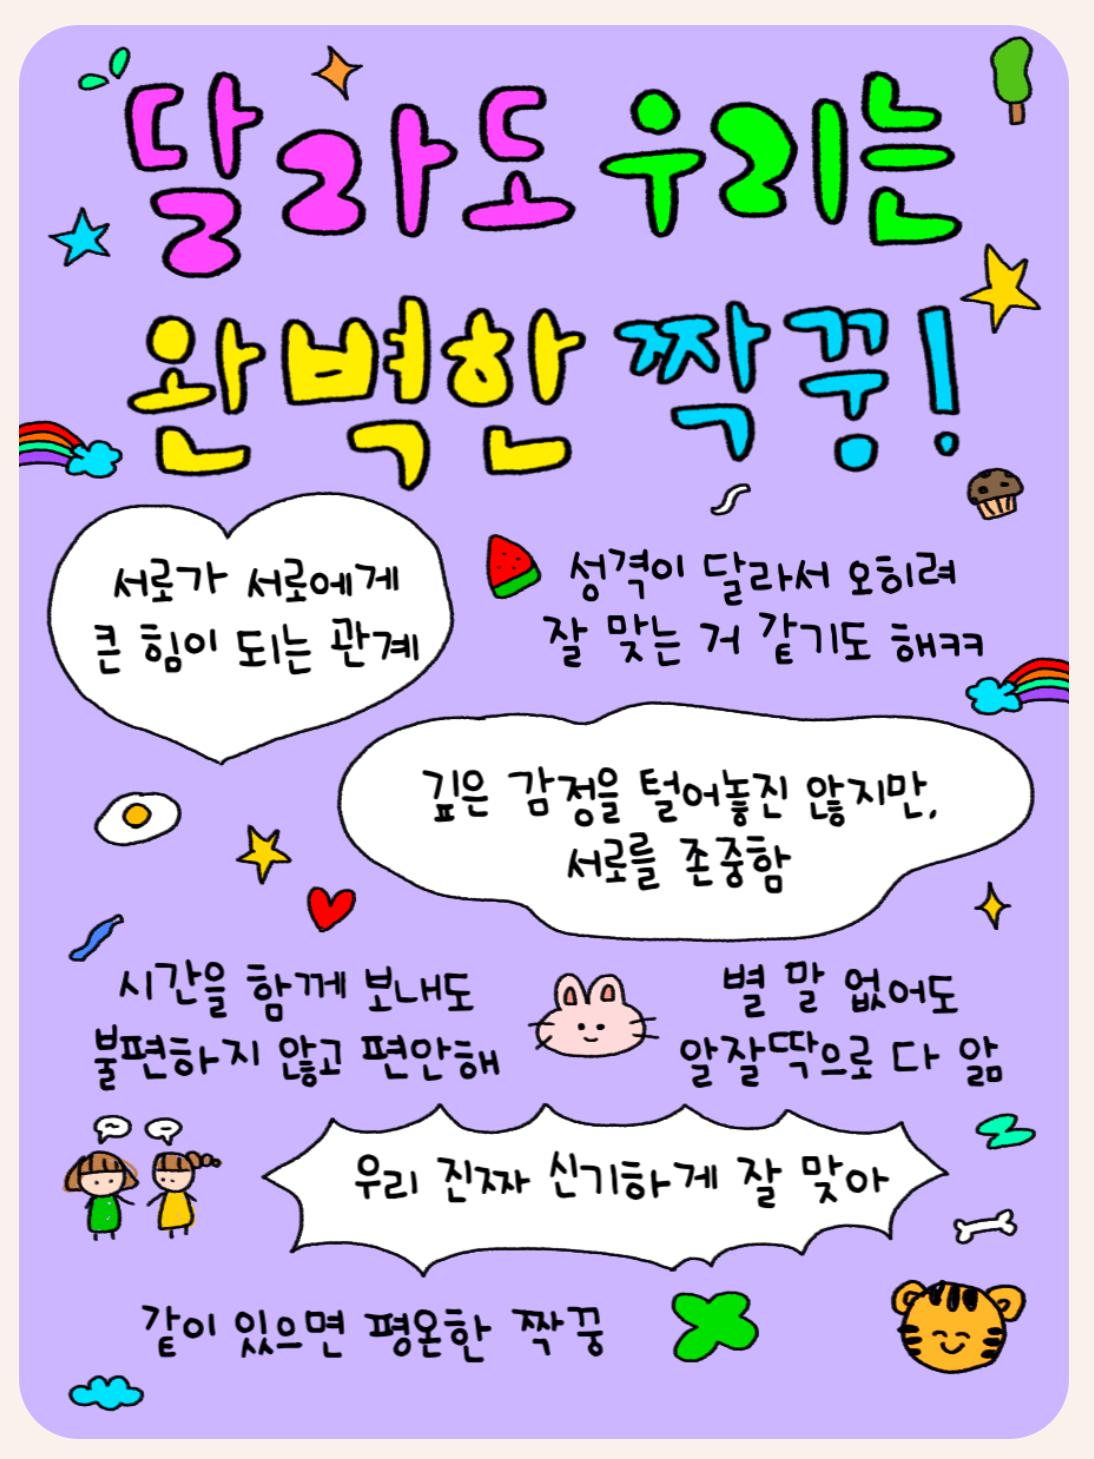 달라도 우리는
완벽한 짝꿍!
서로가 서로에게
큰 힘이 되는 관계
성격이 달라서 오히려
잘 맞는 거 같기도 해ㅋㅋ
깊은 감정을 털어놓진 않지만,
서로를 존중함
시간을 함께 보내도
불편하지 않고 편안해
별 말 없어도
알잘딱으로 다 앎
우리 진짜 신기하게 잘 맞아
같이 있으면 평온한 짝꿍